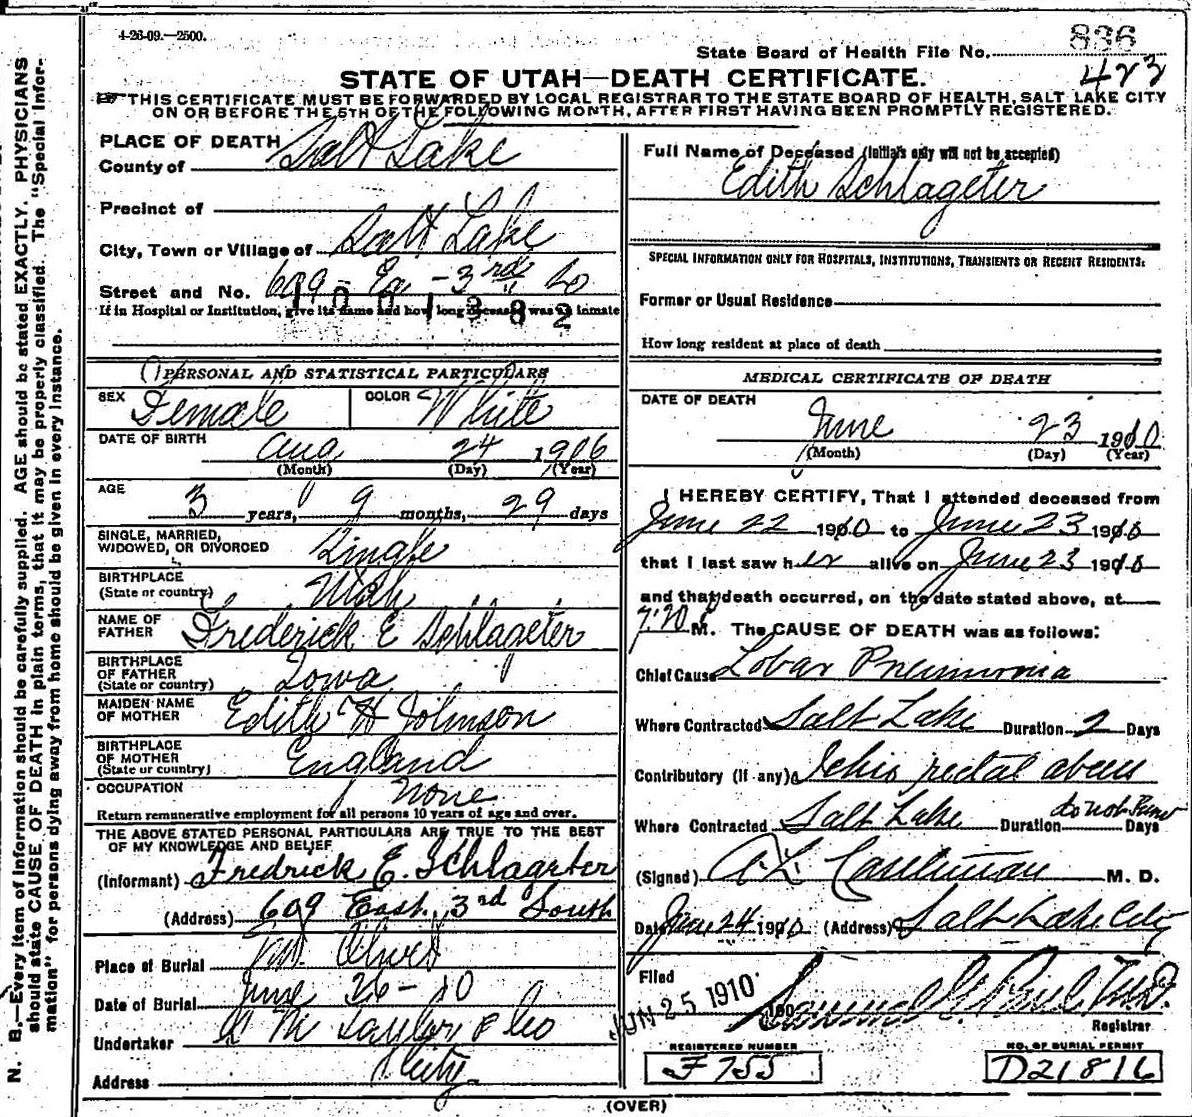 4-26-09.—2500.
State Board of Health File No. 836
423
STATE OF UTAH—DEATH CERTIFICATE.
THIS CERTIFICATE MUST BE FORWARDED BY LOCAL REGISTRAR TO THE STATE BOARD OF HEALTH, SALT LAKE CITY
ON OR BEFORE THE 5TH OF THE FOLLOWING MONTH, AFTER FIRST HAVING BEEN PROMPTLY REGISTERED.
PLACE OF DEATH
County of Salt Lake
Precinct of
City, Town or Village of Salt Lake
Street and No. 609 - Ea - 3rd So
1001382
If in Hospital or Institution, give its name and how long deceased was an inmate
PERSONAL AND STATISTICAL PARTICULARS
SEX Female COLOR White
DATE OF BIRTH Aug 24 1906
(Month) (Day) (Year)
AGE 3 years, 9 months, 29 days
SINGLE, MARRIED,
WIDOWED, OR DIVORCED Single
BIRTHPLACE
(State or country) Utah
NAME OF
FATHER Frederick E Schlageter
BIRTHPLACE
OF FATHER
(State or country) Iowa
MAIDEN NAME
OF MOTHER Edith H Johnson
BIRTHPLACE
OF MOTHER
(State or country) England
OCCUPATION None
Return remunerative employment for all persons 10 years of age and over.
THE ABOVE STATED PERSONAL PARTICULARS ARE TRUE TO THE BEST
OF MY KNOWLEDGE AND BELIEF
(Informant) Fredrick E. Schlageter
(Address) 609 East 3rd South
Place of Burial Mt. Olivet
Date of Burial June 26 - 10
Undertaker Taylor & Co
Address City
Full Name of Deceased (Initials only will not be accepted)
Edith Schlageter
SPECIAL INFORMATION ONLY FOR HOSPITALS, INSTITUTIONS, TRANSIENTS OR RECENT RESIDENTS:
Former or Usual Residence
How long resident at place of death
MEDICAL CERTIFICATE OF DEATH
DATE OF DEATH
June 23 1910
(Month) (Day) (Year)
I HEREBY CERTIFY, That I attended deceased from
June 22 1910 to June 23 1910
that I last saw her alive on June 23 1910
and that death occurred, on the date stated above, at
7:20 M. The CAUSE OF DEATH was as follows:
Chief Cause Lobar Pneumonia
Where Contracted Salt Lake Duration 2 Days
Contributory (if any) Ischio rectal abcess
Where Contracted Salt Lake Duration do not know Days
(Signed) A. L. M. D.
Date June 24 1910 (Address) Salt Lake City
Filed JUN 25 1910 190
Registrar
REGISTERED NUMBER
F 755
NO. OF BURIAL PERMIT
D21816
(OVER)
N. B.—Every item of information should be carefully supplied. AGE should be stated EXACTLY. PHYSICIANS
should state CAUSE OF DEATH in plain terms, that it may be properly classified. The "Special Infor-
mation" for persons dying away from home should be given in every instance.